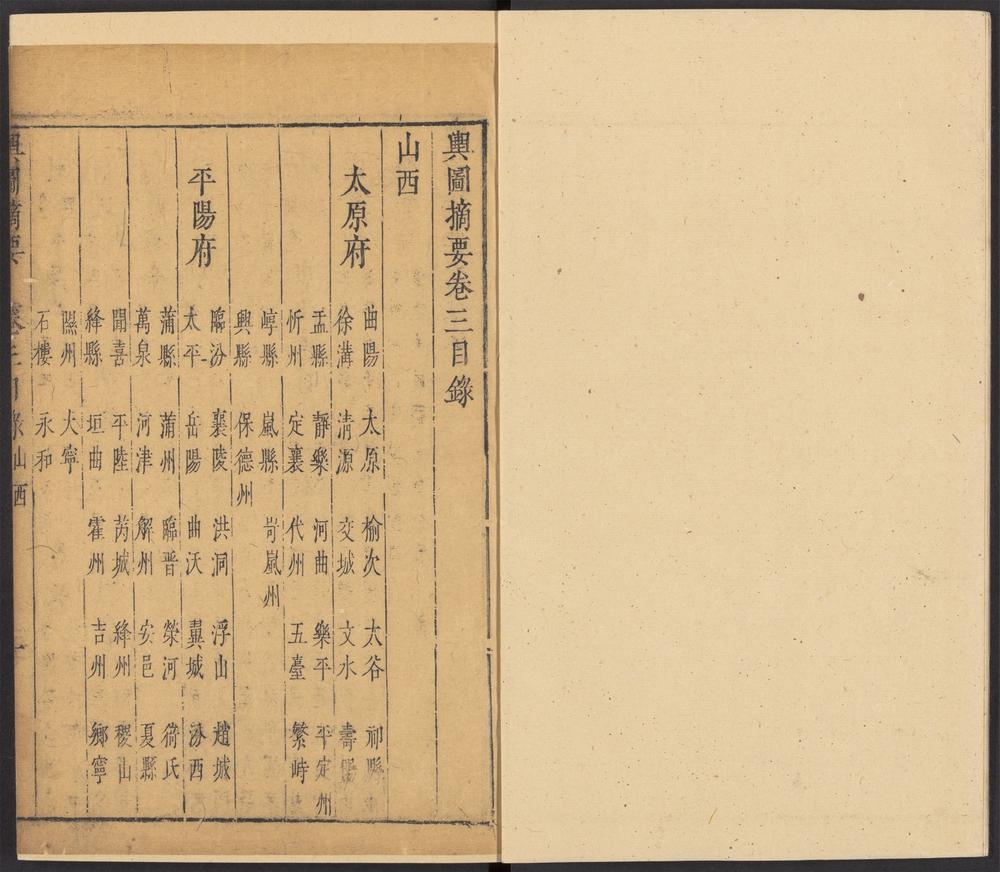 輿圖摘要卷三目錄
山西
太原府
曲陽 太原 榆次 太谷 祁縣
徐溝 清源 交城 文水 壽陽
盂縣 靜樂 河曲 樂平 平定州
忻州 定襄 代州 五臺 繁峙
崞縣 嵐縣 岢嵐州
興縣 保德州
平陽府
臨汾 襄陵 洪洞 浮山 趙城
太平 岳陽 曲沃 翼城 汾西
蒲縣 蒲州 臨晉 榮河 猗氏
萬泉 河津 解州 安邑 夏縣
聞喜 平陸 芮城 絳州 稷山
絳縣 垣曲 霍州 吉州 鄉寧
隰州 大寧
石樓 永和
輿圖摘要 卷三目錄 山西 一